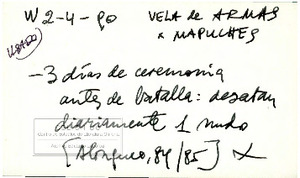 W 2-4-90 VELA de ARMAS
USADO x MAPUCHES
-3 días de ceremonia
antes de batalla: desatan
diariamente 1 nudo
[Alonqueo, 84/85] x